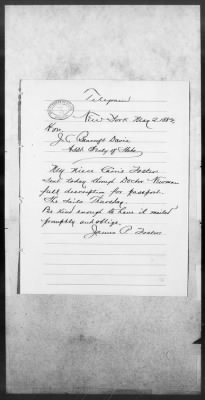 Telegram
New York May 2 1882
Hon.
J. C. Bancroft Davis
Asst Secty of State
My niece Carrie Foster
sent today through Doctor Newman
full description for passport.
She sails Thursday.
Be kind enough to have it mailed
promptly and oblige.
James P. Foster